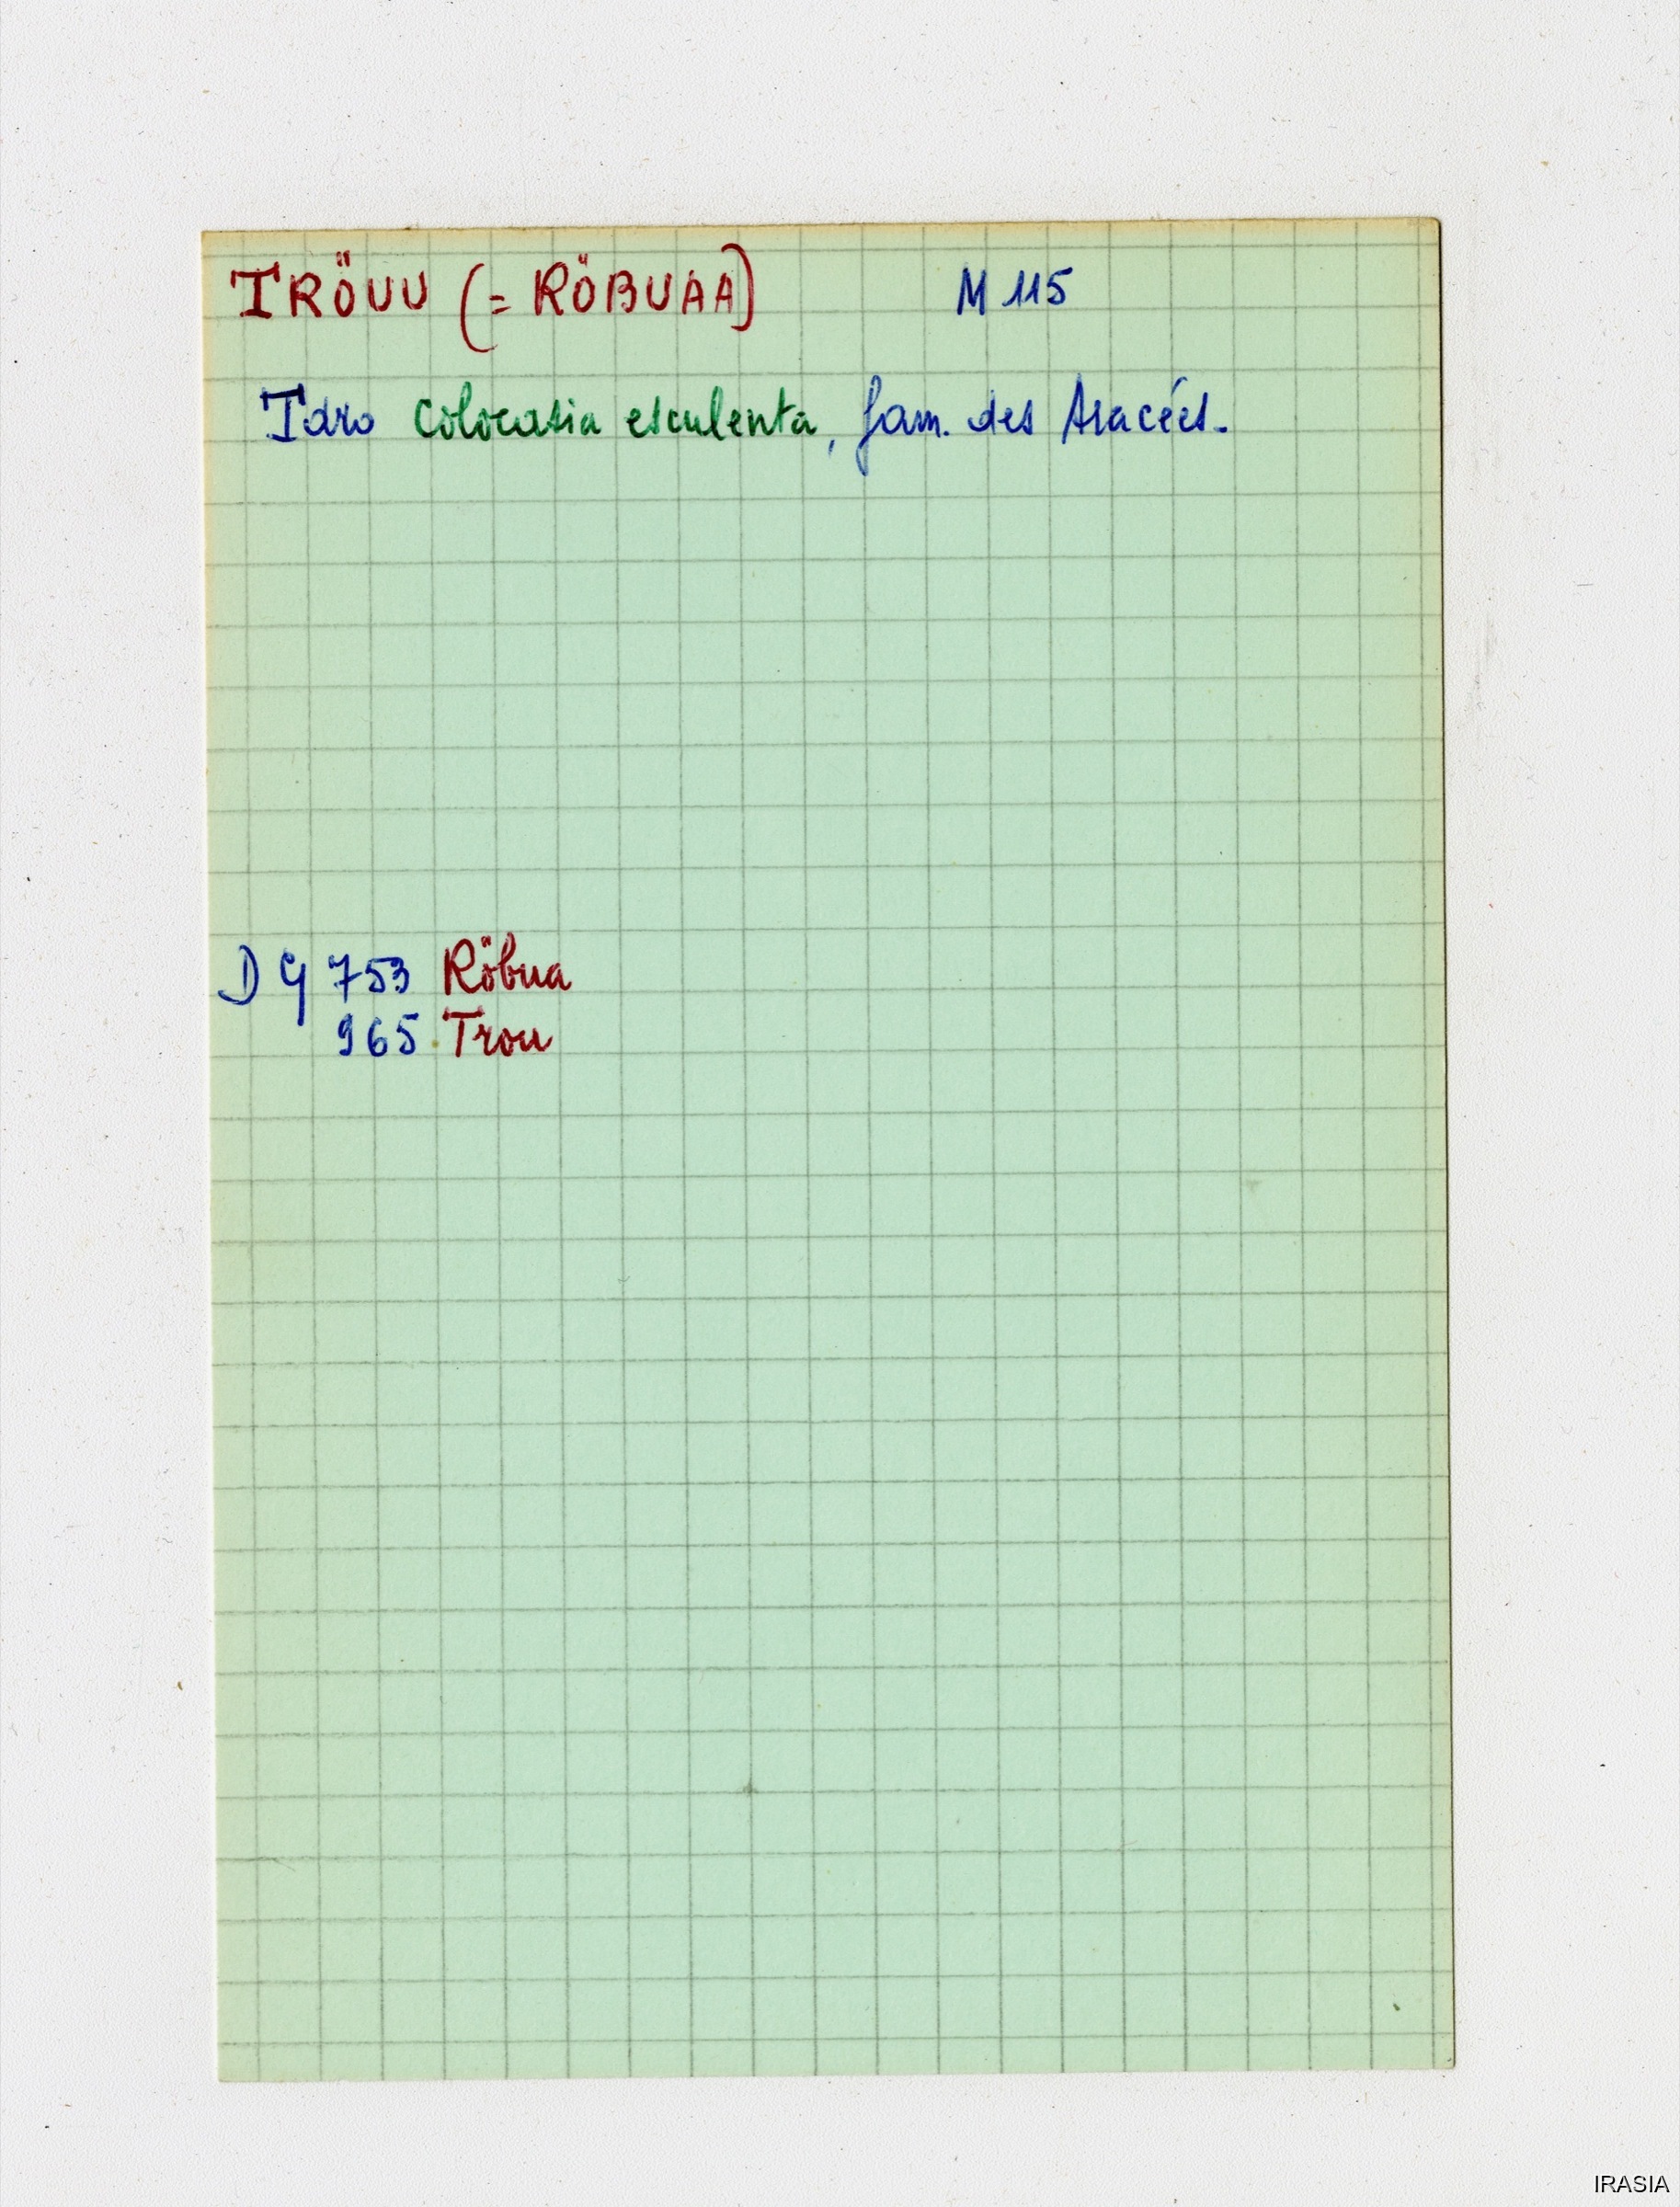 TRÖUU (= RÖBUAA) M 115
Taro Colocasia esculenta, fam. des Aracées.
DG 753 Röbua
965 Trou
IRASIA